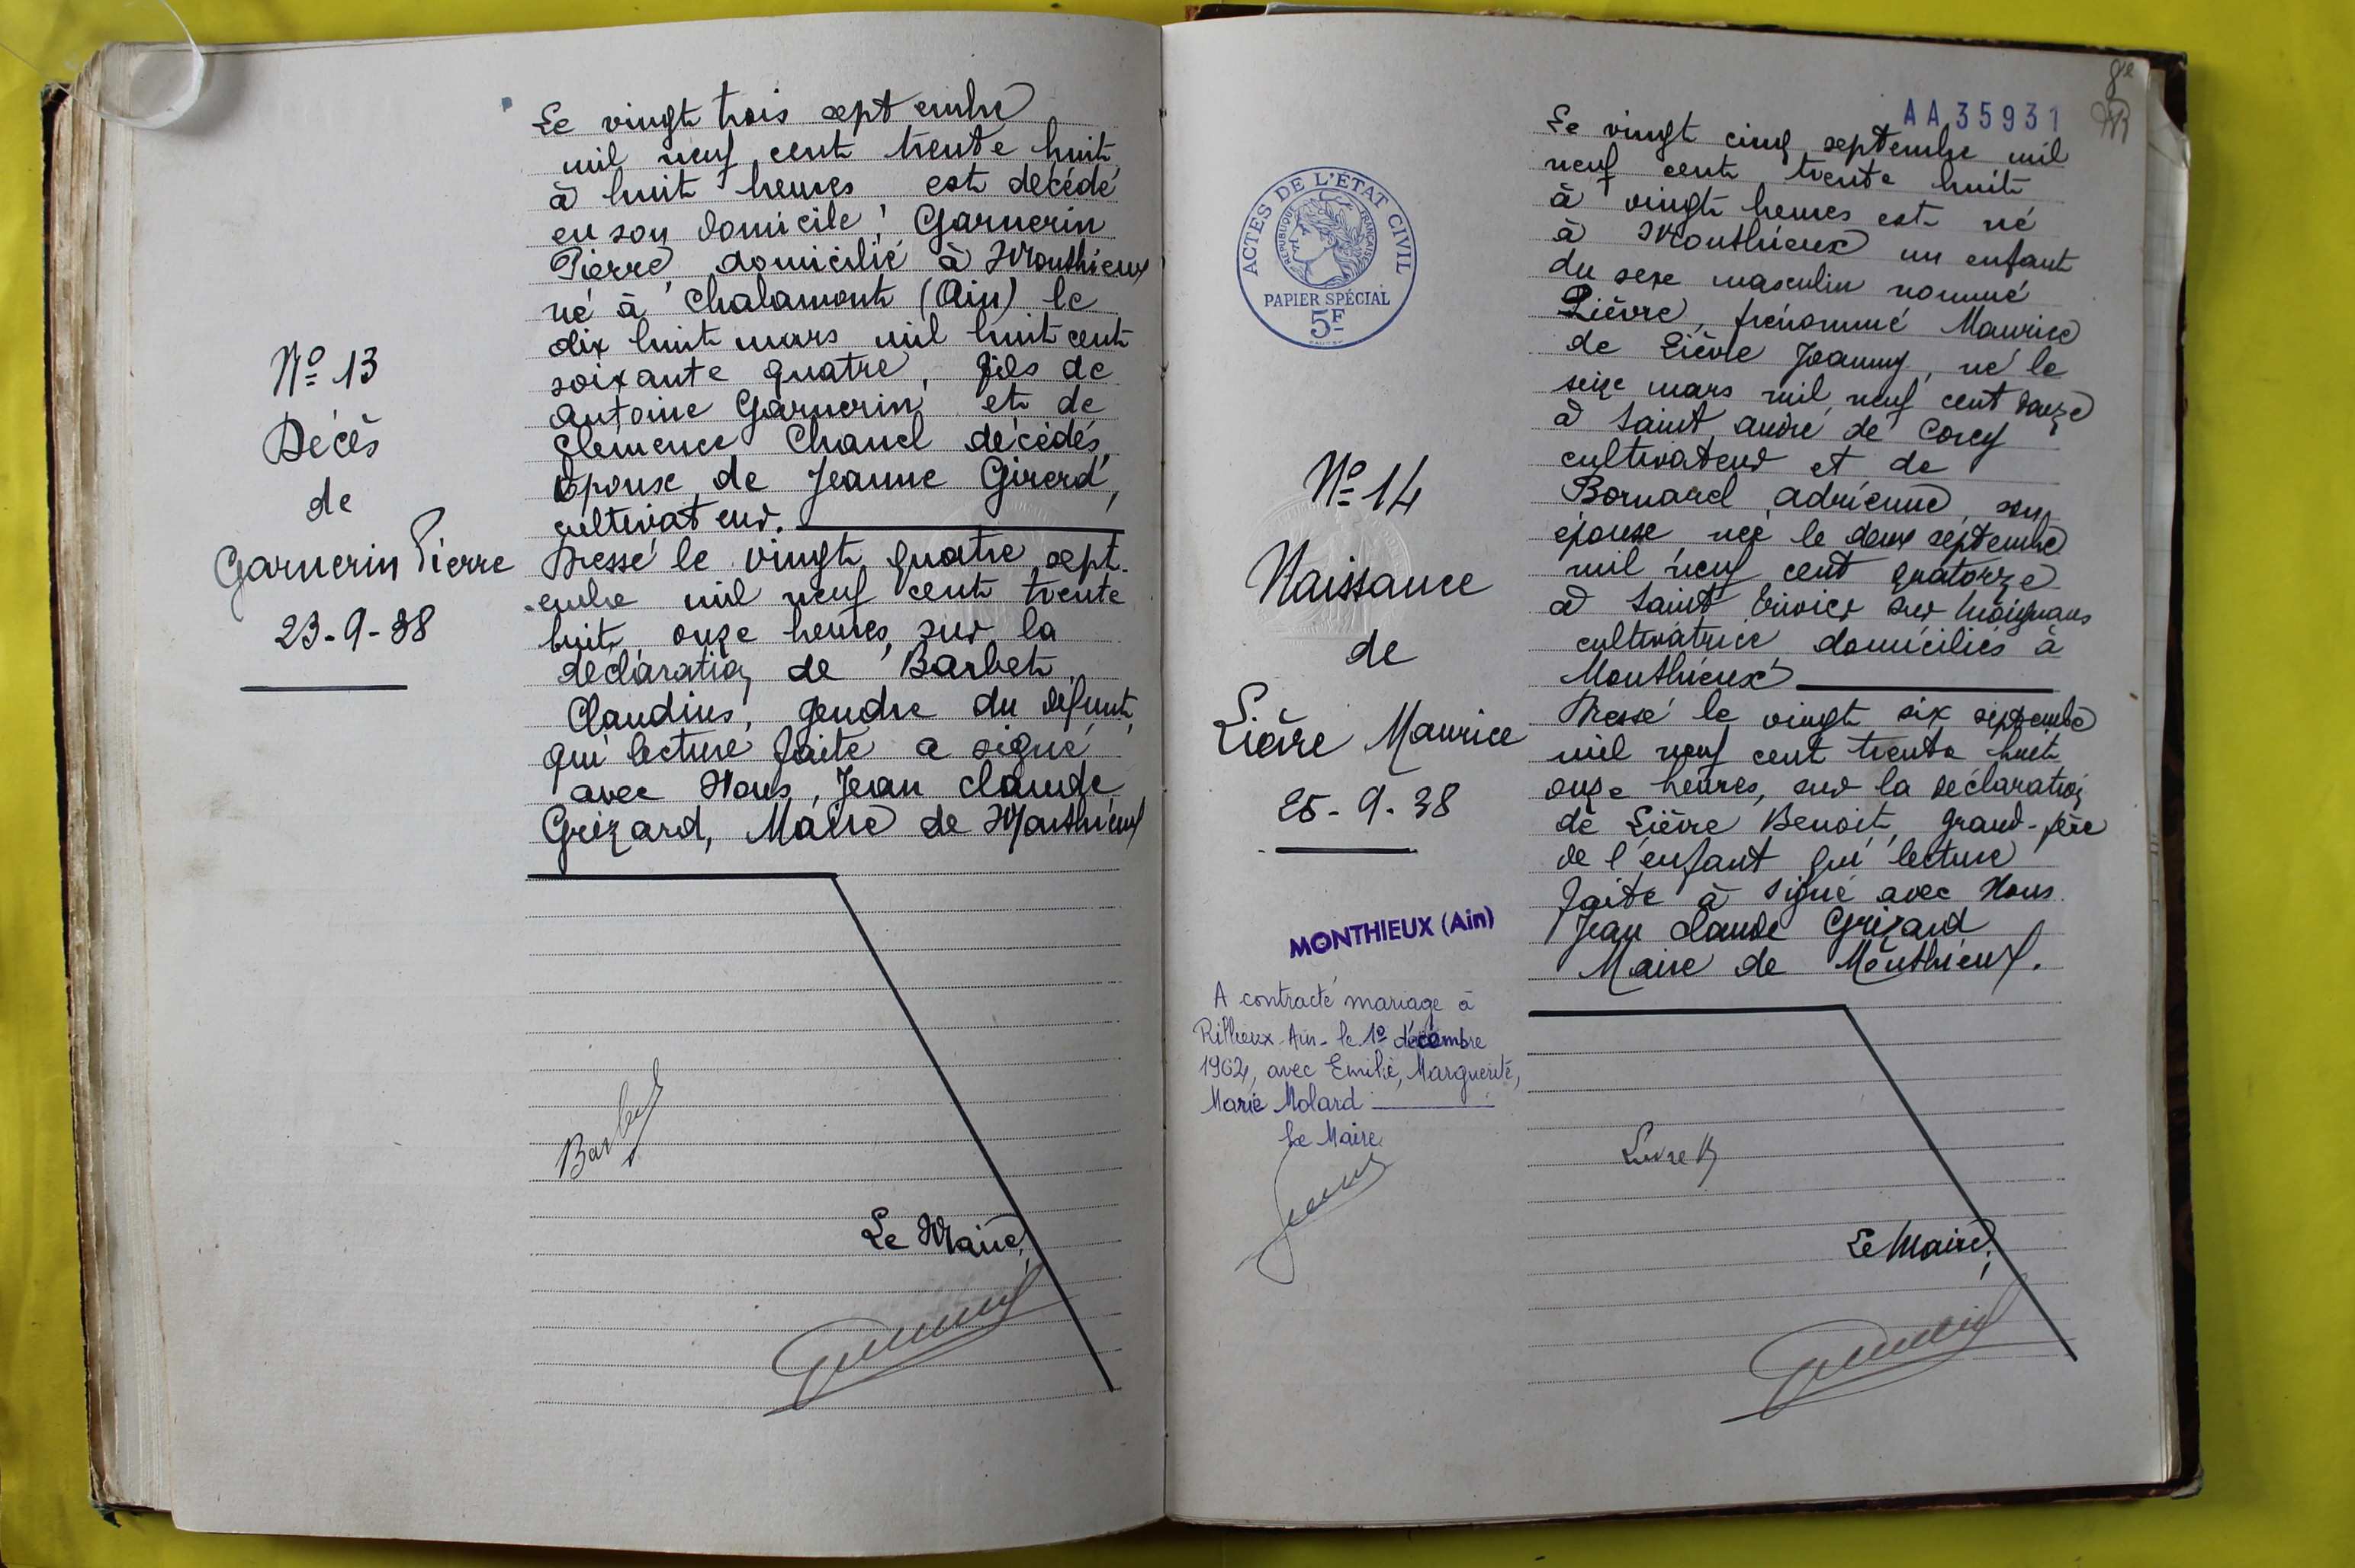 N° 13
Décès
de
Garnerin Pierre
23-9-38
Le vingt trois septembre
mil neuf cent trente huit
à huit heures est décédé
en son domicile, Garnerin
Pierre, domicilié à Monthieux
né à Chalamont (Ain) le
dix huit mars mil huit cent
soixante quatre, fils de
Antoine Garnerin et de
Clémence Chanel décédés,
époux de Jeanne Girerd,
cultivateur.
Dressé le vingt quatre sept-
-embre mil neuf cent trente
huit, onze heures, sur la
déclaration de Barbet
Claudius, gendre du défunt,
qui lecture faite a signé
avec Nous, Jean Claude
Grizard, Maire de Monthieux
Barbet
Le Maire,
8e
AA35931
ACTES DE L'ÉTAT CIVIL
RÉPUBLIQUE FRANÇAISE
PAPIER SPÉCIAL
5F
N° 14
Naissance
de
Lièvre Maurice
25-9-38
MONTHIEUX (Ain)
A contracté mariage à
Rillieux-Ain- le 1er décembre
1962, avec Emilie, Marguerite,
Marie Molard
Le Maire
Le vingt cinq septembre mil
neuf cent trente huit
à vingt heures est né
à Monthieux un enfant
du sexe masculin nommé
Lièvre, prénommé Maurice
de Lièvre Joanny, né le
seize mars mil neuf cent douze
à Saint André de Corcy
cultivateur et de
Bornarel Adrienne, son
épouse née le deux septembre
mil neuf cent quatorze
à Saint Trivier sur Moignans
cultivatrice domiciliés à
Monthieux
Dressé le vingt six septembre
mil neuf cent trente huit
onze heures, sur la déclaration
de Lièvre Benoit, grand-père
de l'enfant qui lecture
faite à signé avec Nous
Jean Claude Grizard
Maire de Monthieux.
Lievre B
Le Maire,